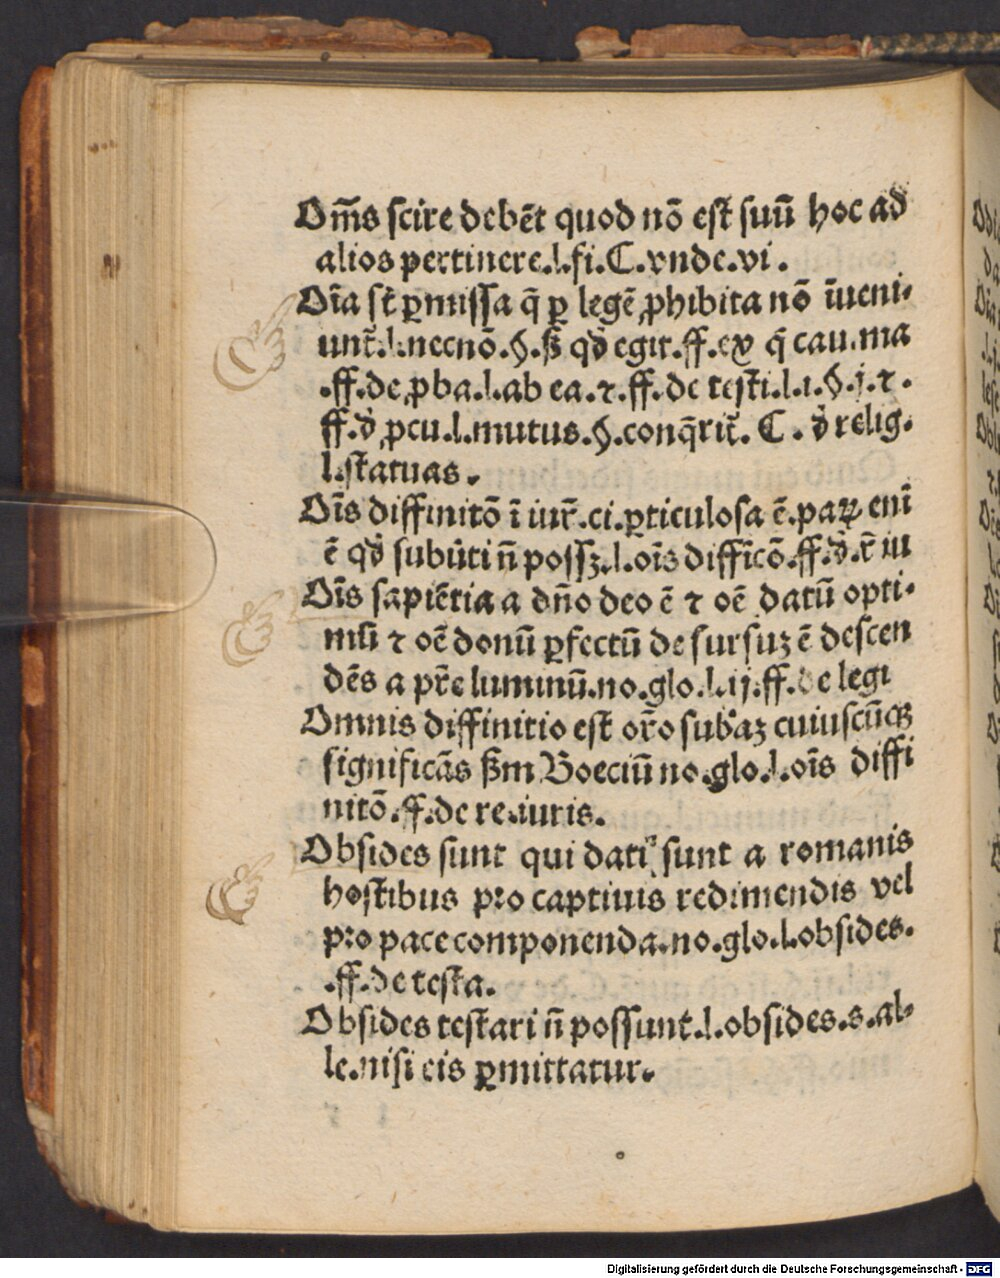 Om̄s scire debēt quod nō est suū hoc ad
alios pertinere.l.fi.C.vnde.vi.
Oīa st̄ ꝑmissa q̄ ꝑ legē ꝓhibita nō īueni⸗
unt̄.l.necnō.§.ß qđ egit.ff.ex q̄ cau.ma
.ff.de ꝓba.l.ab ea.⁊.ff.de testi.l.i.§.j.⁊.
ff.đ ꝓcu.l.mutus.§.conq̄rit̄.C.đ relig⸗
l.statuas.
Oīs diffinitō ī iur̄.ci.ꝑticulosa ē.paꝝ enī
ē qđ subūti n̄ possꝫ.l.oīs difficō.ff.đ.r̄ iu
Oīs sapiētia a dn̄o deo ē ⁊ oē datū opti⸗
mū ⁊ oē donū ꝑfectū de sursuꝫ ē descen
dēs a pr̄e luminū.no.glo.l.ij.ff.de legi
Omnis diffinitio est or̄o subāꝫ cuiuscūqꝫ
significās ßm Boeciū no.glo.l.oīs diffi
nitō.ff.de re.iuris.
Obsides sunt qui dati sunt a romanis
hostibus pro captiuis redimendis vel
pro pace componenda.no.glo.l.obsides.
.ff.de testa.
Obsides testari n̄ possunt.l.obsides.s.al⸗
le.nisi eis ꝑmittatur.
Digitalisierung gefördert durch die Deutsche Forschungsgemeinschaft - DFG